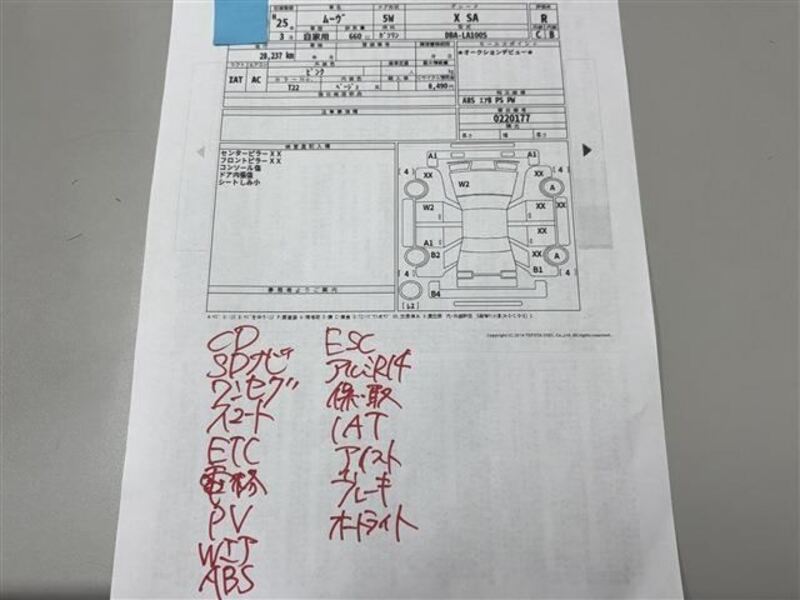 車名 ドア形状 グレード 評価点
H 25 年 ムーヴ 5W X SA R
3 月 自家用 660 cc ガソリン DBA-LA100S C B
28,237 km
IAT AC ピンク
T22 ベージュ 8,490 円
セールスポイント
★オークションデビュー★
ABS エアB PS PW
0220177
長さ 幅 高さ
注意事項欄
検査員記入欄
センターピラーXX
フロントピラーXX
コンソール傷
ドア内張傷
シートしみ小
A1 A1
[4 XX XX [4
W2 A
W2 XX XX
XX
A1
B2 XX A
[4 B1 [4
B4
Copyright (C) 2014 TOYOTA
CD ESC
SDナビ アルミR14
ワンセグ 保・取
スマート IAT
ETC アイスト
電格 ブレーキ
PV オートライト
Wエア
ABS